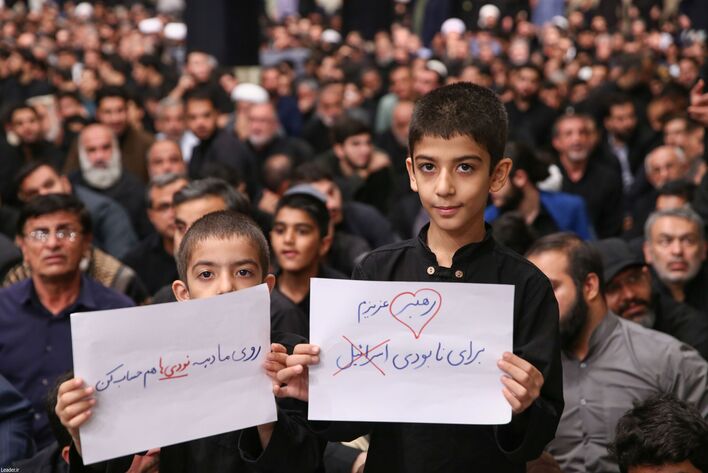 رهبر عزیزم
برای نابودی اسرائیل
روی ما دهه نودی‌ها هم حساب کن
Leader.ir